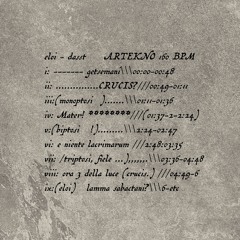 eloi - dasst ARTEKNO 160 BPM
i: ------- getsemani\\\00:00-00:48
ii: ...............CRUCIS?///00:49-01:11
iii:(monoptosi )........\\\01:11-01:36
iv: Mater! *********///(01:37-2-2:24)
v:(biptosi !).........\\\2:24-02:47
vi: e niente lacrimarum ///2:48:03:35
vii: /triptosi, fiele ...),......\\\03:36-04:48
viii: ora 3 della luce (crucis.) ///04:49-6
ix:(eloi) lamma sabactani?\\\6-etv